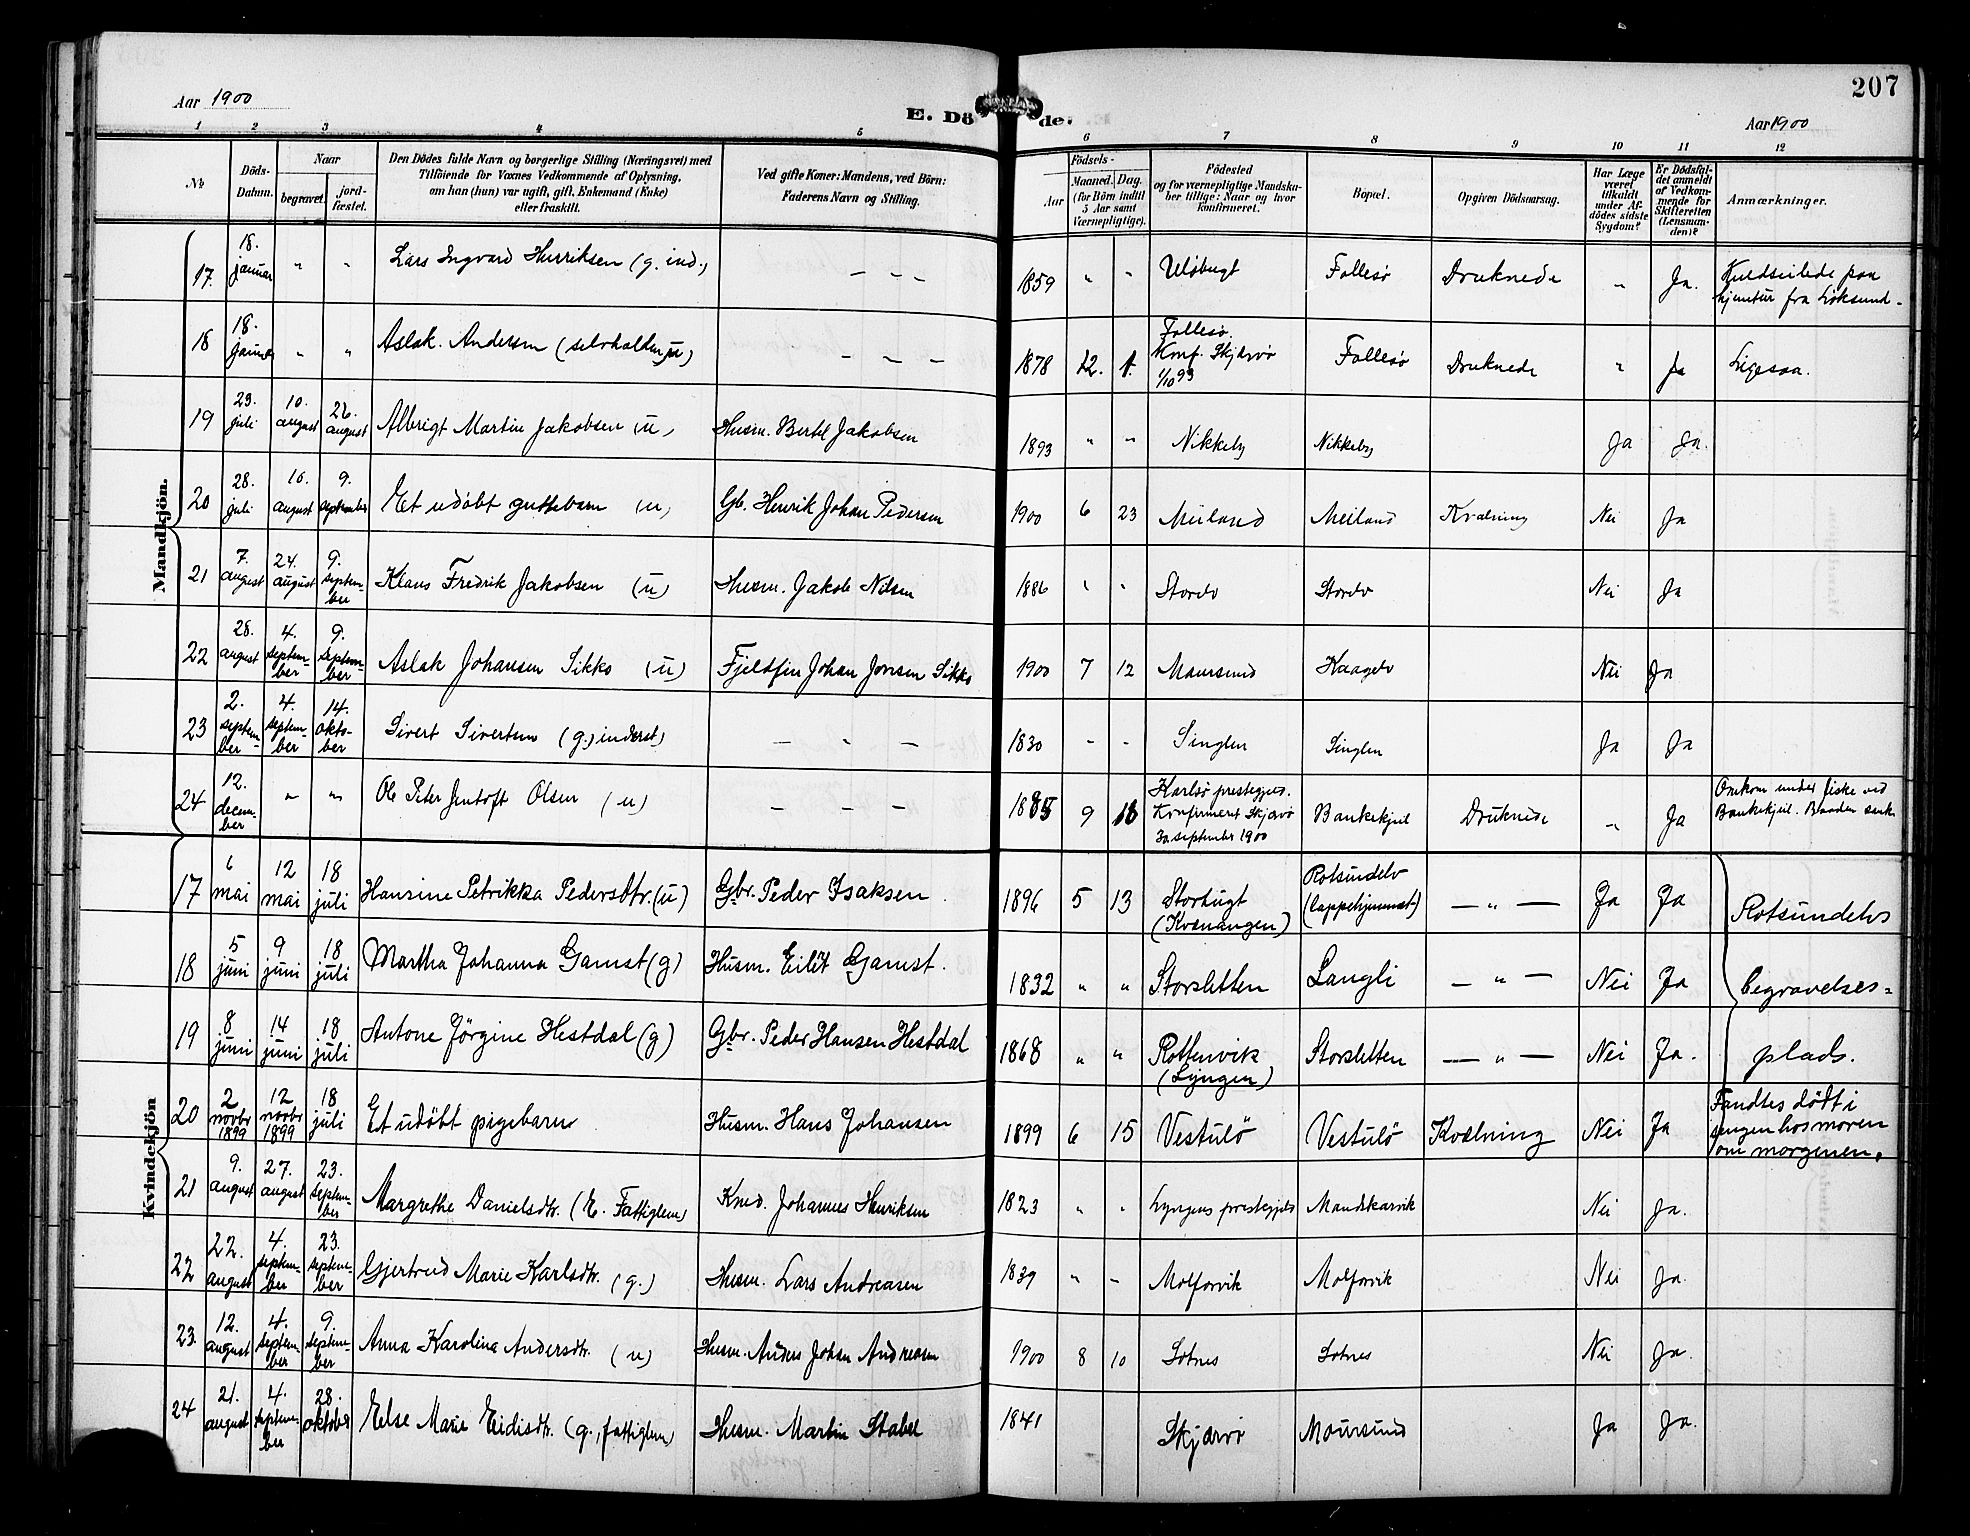 207
Aar 1900
E. Dö
de.
Aar 1900
1 2 3 4 5 6 7 8 9 10 11 12
No
Döds-
Datum.
Naar
begravet.
jord-
fæstet.
Den Dödes fulde Navn og borgerlige Stilling (Næringsvei) med
Tilföiende for Voxnes Vedkommende af Oplysning,
om han (hun) var ugift, gift, Enkemand (Enke)
eller fraskilt.
Ved gifte Koner: Mandens, ved Börn:
Faderens Navn og Stilling.
Födsels-
Aar
Maaned. Dag.
(for Börn indtil
5 Aar samt
Værnepligtige).
Födested
og for værnepligtige Mandska-
ber tillige: Naar og hvor
konfirmeret.
Bopæl.
Opgiven Dödsaarsag.
Har Læge
været
tilkaldt
under Af-
dödes sidste
Sygdom?
Er Dödsfal-
det anmeldt
af Vedkom-
mende for
Skifteretten
(Lensman-
den)?
Anmærkninger.
Mandkjön.
17. 18. januar " " Lars Ingvard Henriksen (g. ind.) — — — 1859 " " Ulöbugt Follesö Druknede " Ja. Kuldseilede paa
hjemtur fra Löksund.
18 18. januar " " Aslak Andersen (selvholden, u) — — — 1878 12. 1. Follesö.
Konf. Skjærvö
1/10 93 Follesö Druknede " Ja Ligesaa.
19 23. juli 10. august 26. august Albrigt Martin Jakobsen (u) Husm. Bertel Jakobsen 1893 " " Nikkeby Nikkeby Ja Ja.
20 28. juli 16. august 9. september Et udöbt guttebarn (u) Gb. Henrik Johan Pedersen 1900 6 23 Meiland Meiland Kvælning Nei Ja
21 7. august 24. august 9. septem-
ber Klaus Fredrik Jakobsen (u) Husm. Jakob Nilsen 1886 " " Storelv Storelv Nei Ja
22 28. august 4. septem-
ber 9. septem-
ber Aslak Johansen Sikko (u) Fjeldfin Johan Jonsen Sikko 1900 7 12 Maursund Kaagelv Nei Ja
23 2. septem-
ber 4. septem-
ber 14. okto-
ber Sivert Sivertsen (g. inderst) — - — 1830 - - Singlen Singlen Ja Ja
24 12. decem-
ber " " Ole Peter Jentoft Olsen (u) — — — 1885 9 18 Karlsö prestegjed.
Konfirmeret Skjærvö
30 september 1900 Bankekjeil Druknede " Ja Omkom under fiske ved
Bankekjeil. Baaden sank.
Kvindekjön
17 6 mai 12 mai 18 juli Hansine Petrikka Pedersdtr. (u) Gbr. Peder Isaksen. 1896 5 13 Storbugt
(Kvænangen) Rotsundelv
(lappehjemmet) — " — Ja Ja Rotsundelvs
18 5 juni 9 juni 18 juli Martha Johanna Gamst (g) Husm. Eilert Gamst. 1832 " " Storsletten Langli — " — Nei Ja begravelses=
19 8 juni 14 juni 18 juli Antone Jörgine Hestdal (g) Gbr. Peder Hansen Hestdal 1868 " " Rottenvik
(Lyngen) Storsletten — " — Nei Ja. plads.
20 2 novbr 1899 12 novbr 1899 18 juli Et udöbt pigebarn Husm. Hans Johansen 1899 6 15 Vestulö Vestulö Kvælning Nei Ja Fandtes dödt i
sengen hos moren
om morgenen.
21 9. august 27. august 23. septem-
ber Margrethe Danielsdtr. (E. Fattiglem) Johannes Henriksen 1823 " " Lyngens prestegjeld Mandskarvik Nei Ja.
22 22. august 4. septem-
ber 23. septem-
ber Gjertrud Marie Karlsdtr. (g.) Husm. Lars Andreasen 1839 " - Molforvik Molforvik Nei Ja.
23. 12. august 4. septem-
ber 9. septem-
ber Anna Karolina Andersdtr. (u) Husm. Anders Johan Andreasen 1900 8 10 Lotnes Lotnes Nei Ja.
24 21. august 4. septem-
ber 28. oktober Else Marie Eidisdtr. (g., fattiglem) Husm. Martin Stabel 1841 Skjærvö Maursund Ja Ja.